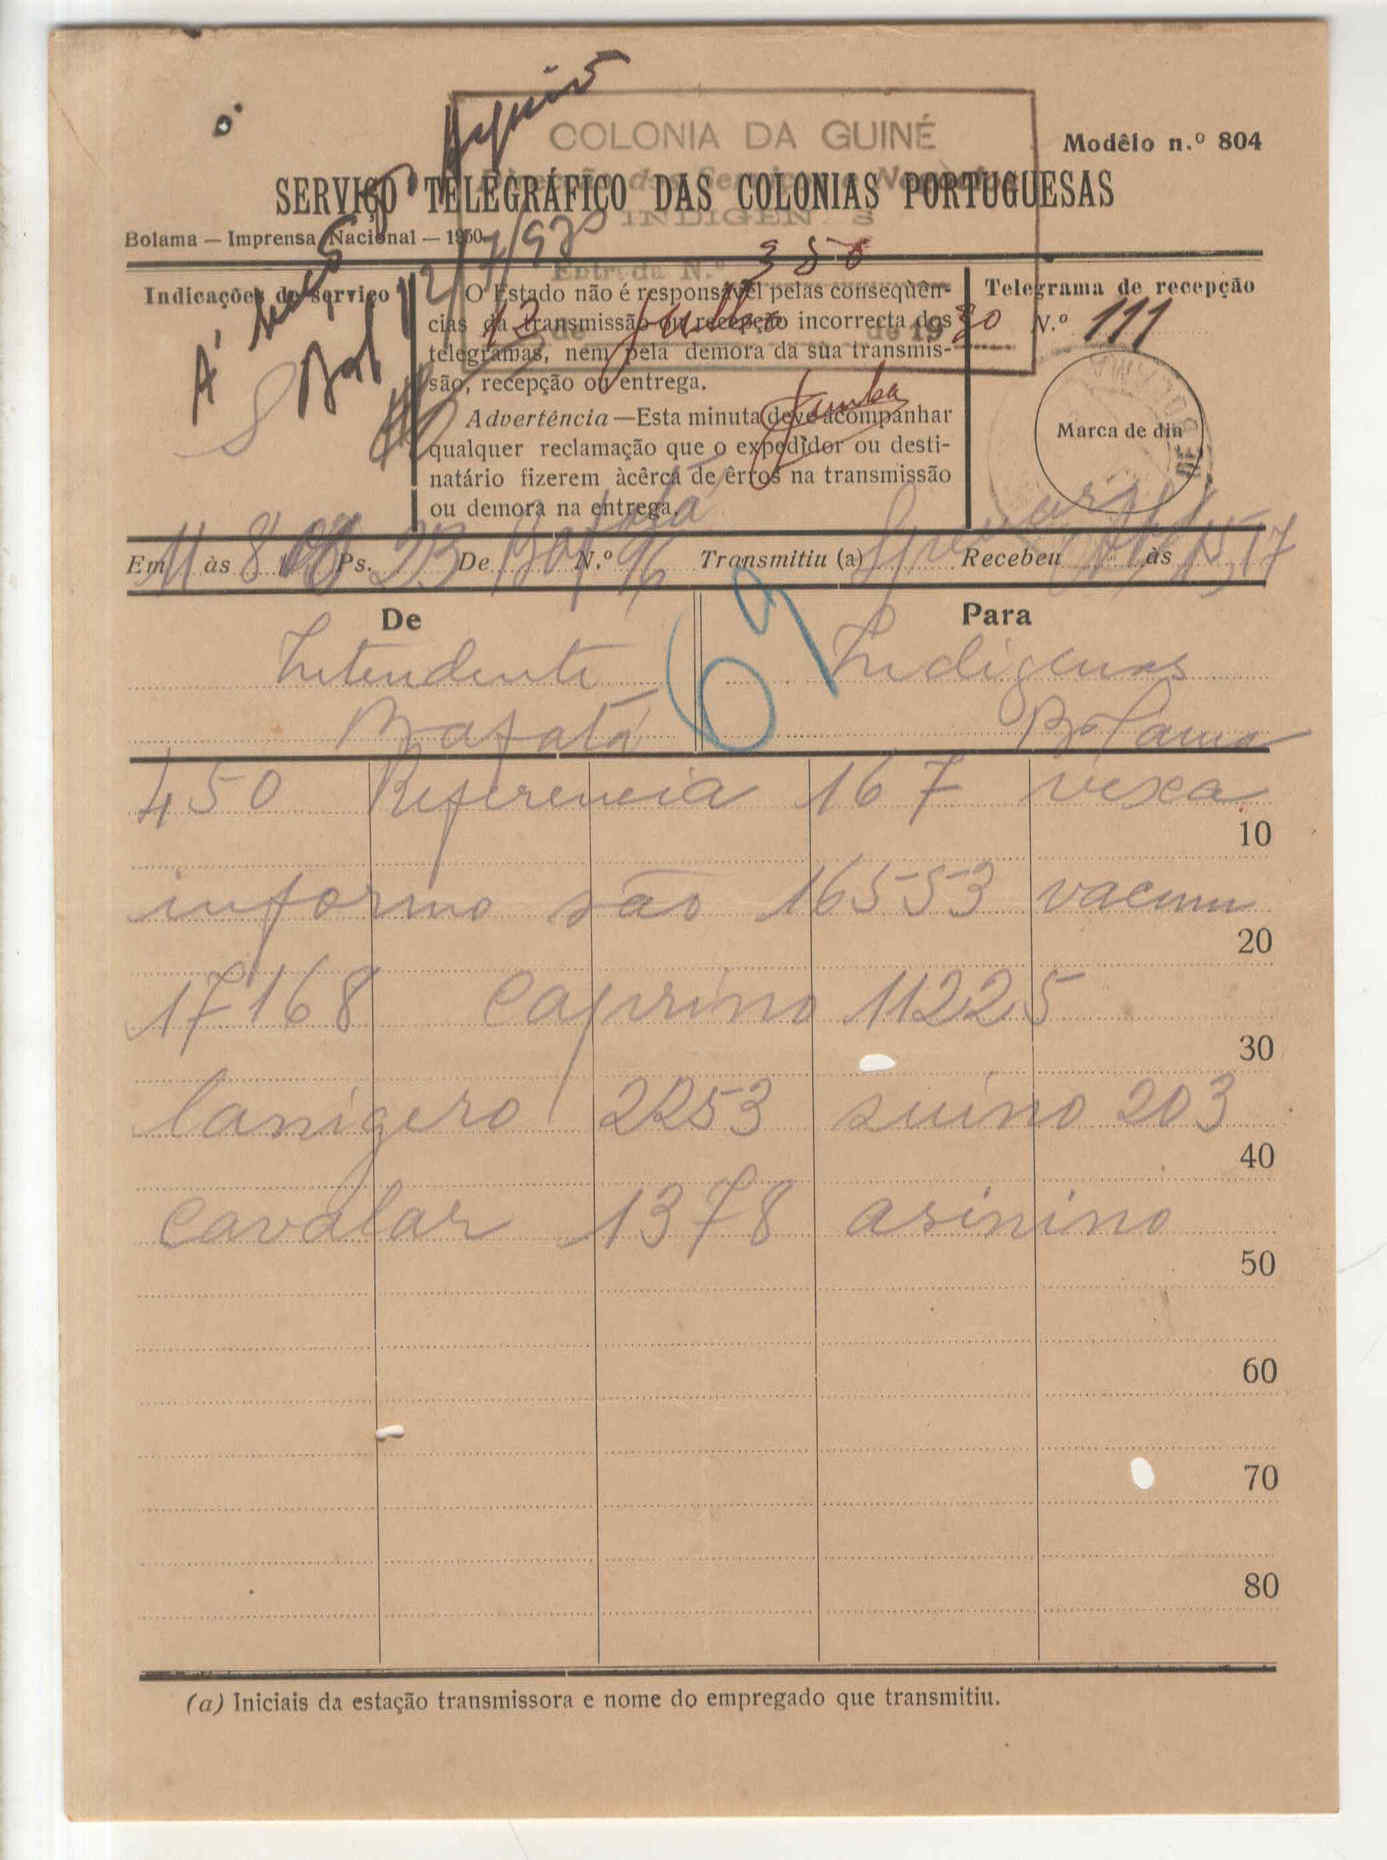 COLONIA DA GUINÉ
Modêlo n.º 804
SERVIÇO TELEGRÁFICO DAS COLONIAS PORTUGUESAS
INDIGENAS
Bolama — Imprensa Nacional — 1930
Entrada N.º 380
Indicações de serviço
O Estado não é responsável pelas consequên-
cias da transmissão ou recepção incorrecta dos
telegramas, nem pela demora da sua transmis-
são, recepção ou entrega.
Advertência—Esta minuta deve acompanhar
qualquer reclamação que o expedidor ou desti-
natário fizerem àcêrca de êrros na transmissão
ou demora na entrega.
12 de julho de 1930
Telegrama de recepção
N.º 111
Marca de dia
Em 11 às 8 Ps. 23 De Bafatá N.º 96 Transmitiu (a) Recebeu às 15,17
De
Para
69
Intendente
Bafatá
Indigenas
Bolama
450 Referencia 167 vexa
10
informo são 16553 vacum
20
17168 caprino 11225
30
lanigero 2253 suino 203
40
cavalar 1378 asinino
50
60
70
80
(a) Iniciais da estação transmissora e nome do empregado que transmitiu.